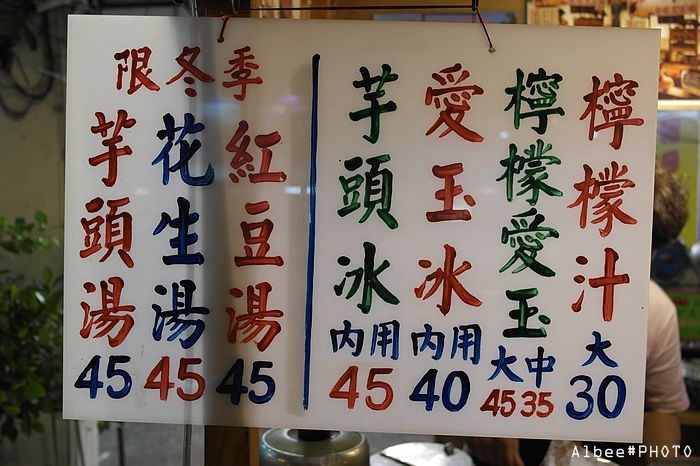 檸檬汁
大
30
檸檬愛玉
大中
45 35
愛玉冰
內用
40
芋頭冰
內用
45
限冬季
紅豆湯
45
花生湯
45
芋頭湯
45
Albee#PHOTO